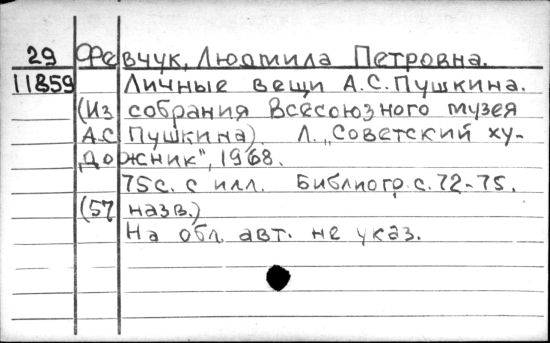 29 Февчук, Людмила Петровна.
11859 Личные вещи А.С.Пушкина.
(Из собрания Всесоюзного музея
А.С Пушкина). Л. „Советский ху-
дожник", 1968.
75с. с илл. Библиогр. с. 72-75.
(57 назв.)
На обл. авт. не указ.